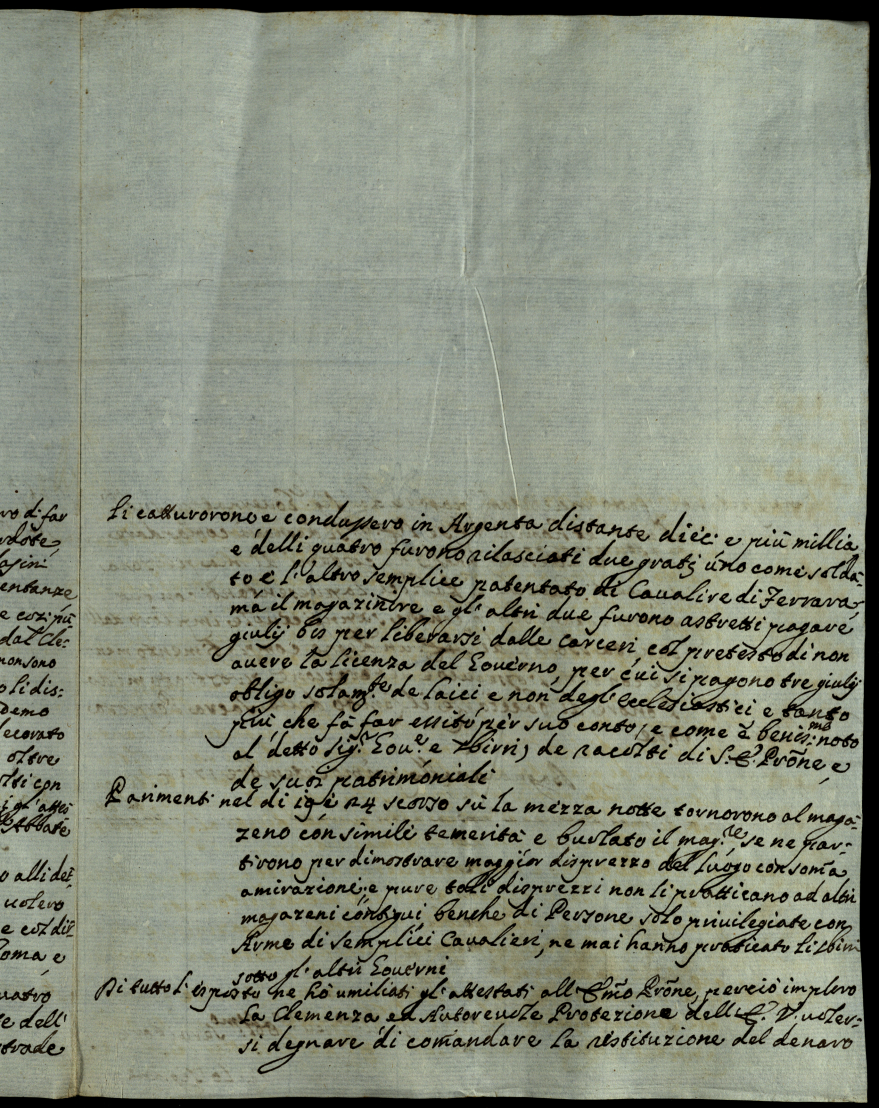 ro di far
rdote
lasini
entanze
e cozi più
dal Cle:
non sono
o li dis:
Demo
decorato
oltre
olti con
Abbate
o alli det
uolero
e col dis
Roma e
uatro
e dell'
strade
li catturorono e condussero in Argenta distante dieci e più millia
e delli quatro furono rilasciati due gratis uno come solda-
to e l'altro semplice patentato di Caualire di Ferrara,
mà il magazinire e gl'altri due furono astretti pagare
giulij bis per liberarsi dalle carceri col pretesto di non
auere la licenza del Gouerno, per cui si pagono tre giulij
obligo solam.te de laici e non degl'ecclesiastici e tanto
più che fà far essito per suo conto, e come è benis:mo noto
al detto sig.r Gou.e e sbirri, de racolti di S. E. Prone, e
de suoi patrimoniali
Parimenti nel di 19 e 24 scorso sù la mezza notte tornorono al maga-
zeno con simili temerità e burlato il mag.re se ne par-
tirono per dimostrare maggior disprezzo del luogo con soma
amirazione, e pure tali disprezzi non li pratticano ad altri
magazeni contigui benche di Persone solo priuilegiate con
Arme di semplici Caualieri, ne mai hanno praticato li sbirri
sotto gl'altri Gouerni
Di tutto l'esposto ne hò umiliati gl'attestati all'Emo Prone, perciò imploro
La Clemenza ed Autoreuole Protezione dell'E. V. uoler-
si degnare di comandare la restituzione del denaro